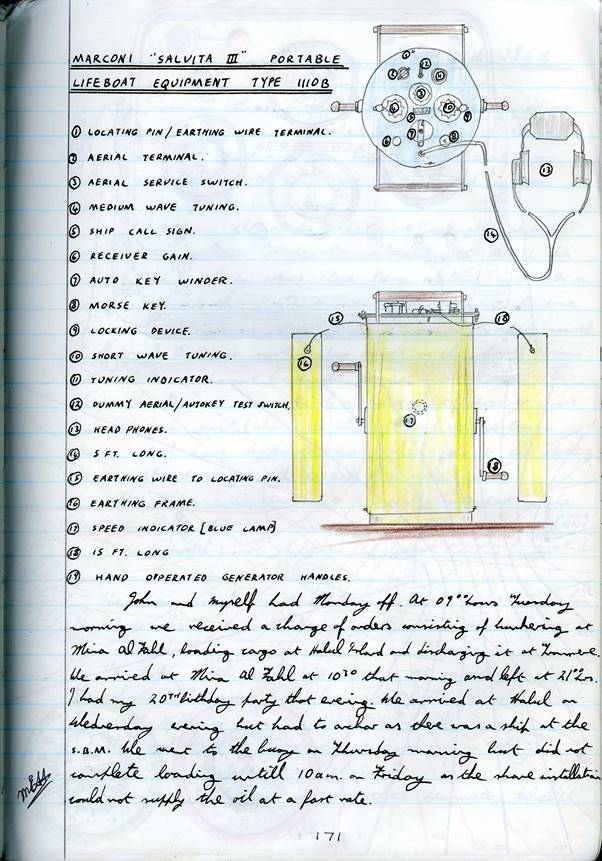 MARCONI "SALVITA III" PORTABLE
LIFEBOAT EQUIPMENT TYPE 1110B
① LOCATING PIN/EARTHING WIRE TERMINAL.
② AERIAL TERMINAL.
③ AERIAL SERVICE SWITCH.
④ MEDIUM WAVE TUNING.
⑤ SHIP CALL SIGN.
⑥ RECEIVER GAIN.
⑦ AUTO KEY WINDER.
⑧ MORSE KEY.
⑨ LOCKING DEVICE.
⑩ SHORT WAVE TUNING.
⑪ TUNING INDICATOR.
⑫ DUMMY AERIAL/AUTOKEY TEST SWITCH.
⑬ HEAD PHONES.
⑭ 5 FT. LONG.
⑮ EARTHING WIRE TO LOCATING PIN.
⑯ EARTHING FRAME.
⑰ SPEED INDICATOR [BLUE LAMP]
⑱ 15 FT. LONG
⑲ HAND OPPERATED GENERATOR HANDLES.
John and myself had Monday off. At 09°° hours Tuesday
morning we received a change of orders consisting of bunkering at
Mina Al Fahl, loading cargo at Halul Island and discharging it at
We arrived at Mina Al Fahl at 1030 that morning and left at 21°° hrs.
I had my 20TH birthday party that evening. We arrived at Halul on
Wednesday evening but had to anchor as there was a ship at the
S.B.M. We went to the buoy on Thursday morning but did not
complete loading untill 10am. on Friday as the shore installation
could not supply the oil at a fast rate.
171